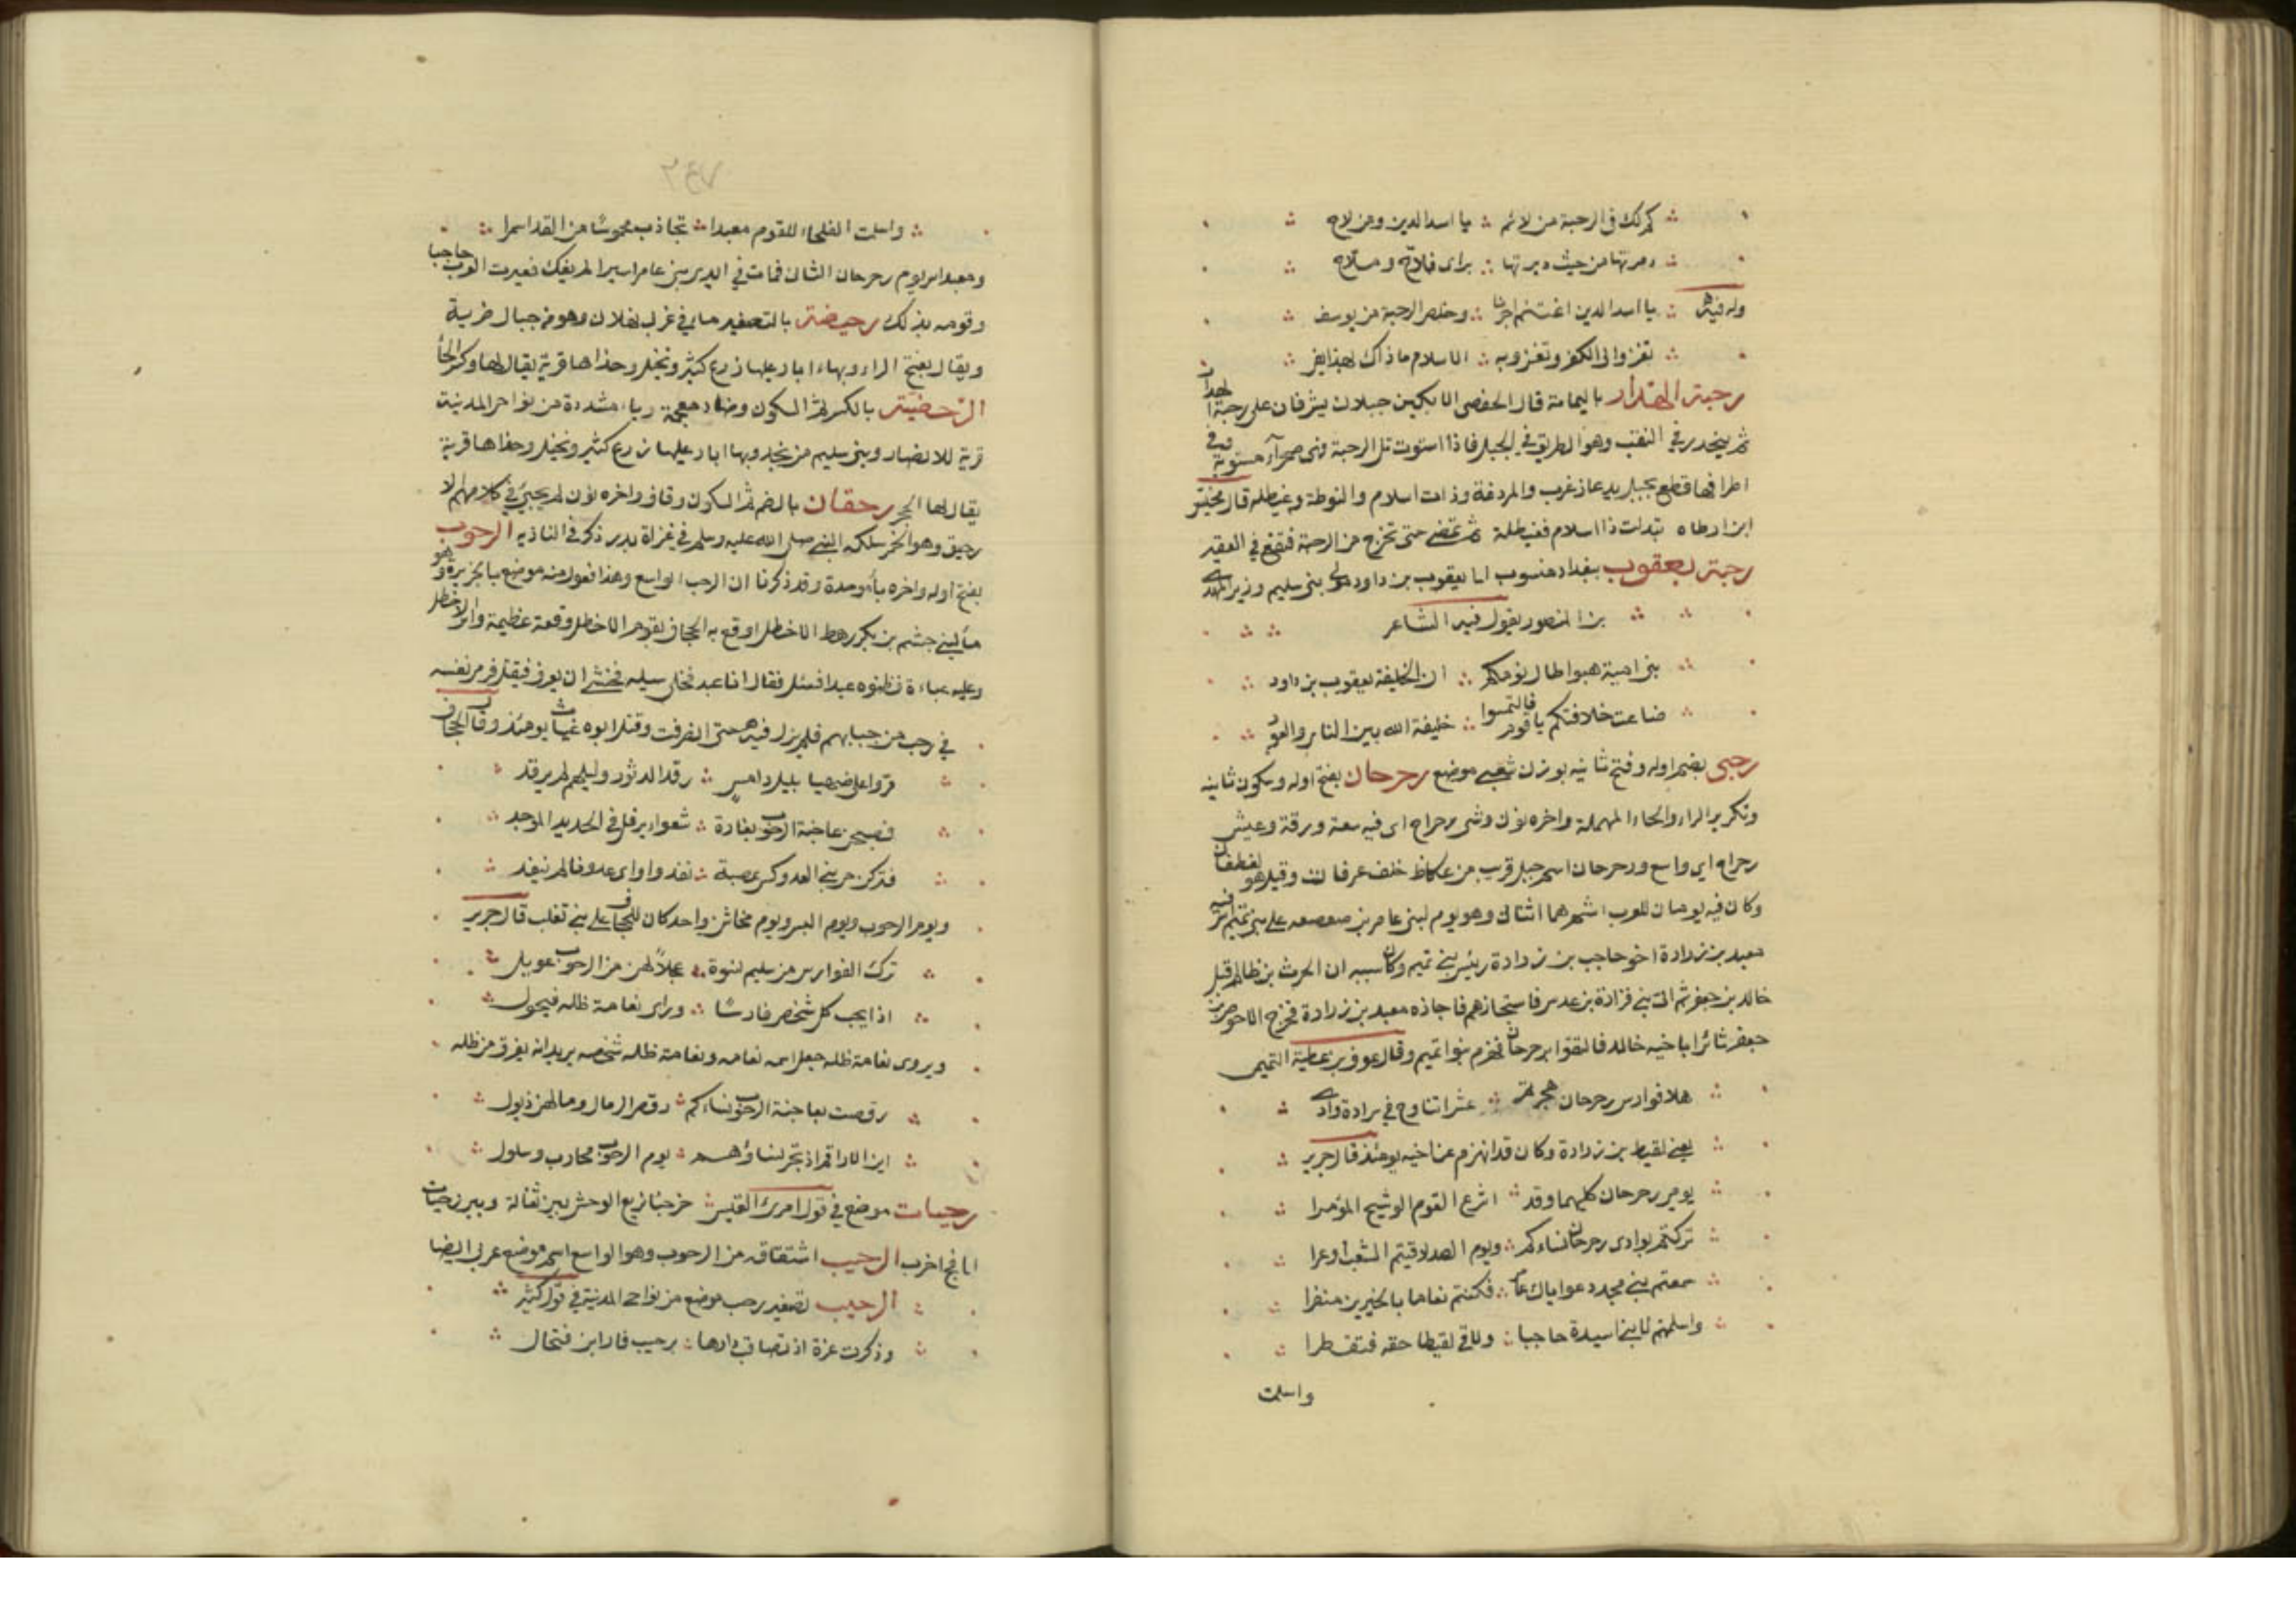 كم لك في الرحبة من لائم يا اسد الدين ومن لاح
دمرتها من حيث دبرتها براى فلاح وملاح
وله فيه يا اسد الدين اغتنم اجرنا وخلص الرحبة من يوسف
تغزوا الى الكفر وتغزوبه الاسلام ماذاك بهذا يفي
رحبة الهدار باليمامة قال الحفصى الابكين جبلان يشرفان على رحبة الهدار
ثم ينحدر في النقب وهو الطريق في الجبل فاذا استوت تل الرحبة فهى صحرآء مستوية وفي
اطرافها قطع جبل يدعا زغرب والمردغة وذات اسلام والنوطة وغيطلة قال مخيس
ابن ارطاه تبدلت ذا اسلام فغيطلة ثم تمضى حتى تخرج من الرحبة فتقع في العقير
رحبة يعقوب ببغداد منسوب الى يعقوب بن داود مولى بنى سليم وزير المهدى
بن المنصور يقول فيه الشاعر
بنى امية هبوا طال نومكم ان الخليفة يعقوب بن داود
ضاعت خلافتكم يا قوم فالتمسوا خليفة الله بين الناى والعود
رحبى بضم اوله وفتح ثانيه بوزن شعبى موضع رحرحان بفتح اوله وسكون ثانيه
وتكرير الراء والحاء المهملة واخره نون وشى رحراح اى فيه سعة ورقة وعيش
رحراح اى واسع ورحرحان اسم جبل قريب من عكاظ خلف عرفات وقيل هو لغطفان
وكان فيه يومان للعرب اشهرهما الثانى وهو يوم لبنى عامر بن صعصعه على بنى تميم اسر فيه
معبد بن زرارة اخو حاجب بن زرارة رئيس بنى تميم وكان سببه ان الحرث بن ظالم قتل
خالد بن جعفر ثم اتى بنى فزارة بن عدس فاستجارهم فاجاره معبد بن زرارة فخرج الاحوص بن
جعفر ثائرا باخيه خالد فالتقوا برحرحان فهزم بنوا تميم وقال عوف بن عطية التميمى
هلا فوارس رحرحان هجوتهم عشرا تناوح في سرارة وادى
يعنى لقيط بن زرارة وكان قد انهزم عن اخيه يومئذ قال جرير
يومى رحرحان كليهما وقد اشرع القوم الوشيج المؤمرا
تركتم بوادى رحرحان نساءكم ويوم الصد لاقيتم الشعب اوعرا
سمعتم بنى مجد دعوا يال عامر فكنتم نعاما بالحزيز منفرا
واسلمتم لابنى اسيدة حاجبا ولاقى لقيطا حتفه فتقطرا
واسلمت
٢٤٧
واسلمت الفلحاء للقوم معبدا تجاذب مخموسًا من القد اسمرا
ومعبد اسر يوم رحرحان الثانى فمات في ايدى بنى عامر اسيرا لم يفك فعيرت العرب حاجبا
وقومه بذلك رحيضة بالتصغير ماء في غربى ثهلان وهو من جبال ضرية
ويقال بفتح الراء وبهاء ابار عليها زرع كثير ونخل وحذاها قرية يقال لها وكز الحا
الرحضية بالكسر ثم السكون وضاد معجمة وياء مشددة من نواحى المدينة
قرية للانصار وبنى سليم من نجد وبها ابار عليها زرع كثير ونخل وحذاها قرية
يقال لها الحجر رحقان بالضم ثم السكون وقاف واخره نون لم يجئ في كلامهم الا
رحيق وهو الخمر سلكه النبى صلى الله عليه وسلم في غزاة بدر ذكر في النازيه الرحوب
بفتح اوله واخره باء موحدة وقد ذكرنا ان الرحب الواسع وهذا فعول منه موضع بالجزيرة وهو
ماء لبنى جشم بن بكر رهط الاخطل اوقع به الجحاف بقوم الاخطل وقعة عظيمة واسر الاخطل
وعليه عباءة فظنوه عبدا فسئل فقال انا عبد فخلى سبيله فخشى ان يعرف فيقتل فرمى نفسه
في جب من جبابهم فلم يزل فيه حتى انصرفت وقتل ابوه غياث يومئذ وقال الجحاف
مروا على صهيا بليل دامس رقد الدثور وليلهم لم يرقد
فصبحن عاجنة الرحوب بغارة شعواء يرفل في الحديد الموجد
فتركن حى بنى الفدوكس عصبة نفدوا واى عدونا لم ينفد
ويوم الرحوب ويوم البسر ويوم مخاشن واحد كان للجحاف على بنى تغلب قال جرير
ترك الفوارس من سليم نسوة عجلاً لهن من الرحوب عويل
اذا يجب كل شخص فارسًا ويرى نعامة ظله فيجول
ويروى نعامة ظله جعل اسمه نعامه ونعامة ظله شخصه يريد انه يفرق من ظله
رقصت بعاجنة الرحوب نساءكم رقص الرمال ومالهن ذيول
اين الاراقم اذ تجر نساؤهم يوم الرحوب محارب وسلول
رحيبات موضع في قول امرئ القيس خرجنا نريع الوحش بين ثعالة وبين رحيات
الى فج اخرب الرحيب اشتقاقه من الرحوب وهو الواسع اسم موضع عربى ايضا
الرحيب تصغير رحب موضع من نواحى المدينة في قول كثير
وذكرت عزة اذ تصاقب دارها برحيب فاراين فنخال